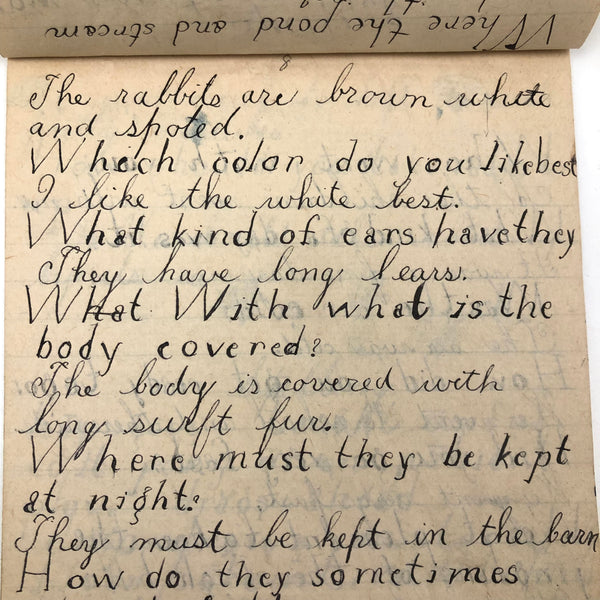 Where the pond and stream
8
The rabbits are brown, white
and spoted.
Which color do you like best
I like the white best.
What kind of ears have they
They have long lears.
What With what is the
body covered?
The body is covered with
long surft fur.
Where must they be kept
at night?
They must be kept in the barn
How do they sometimes